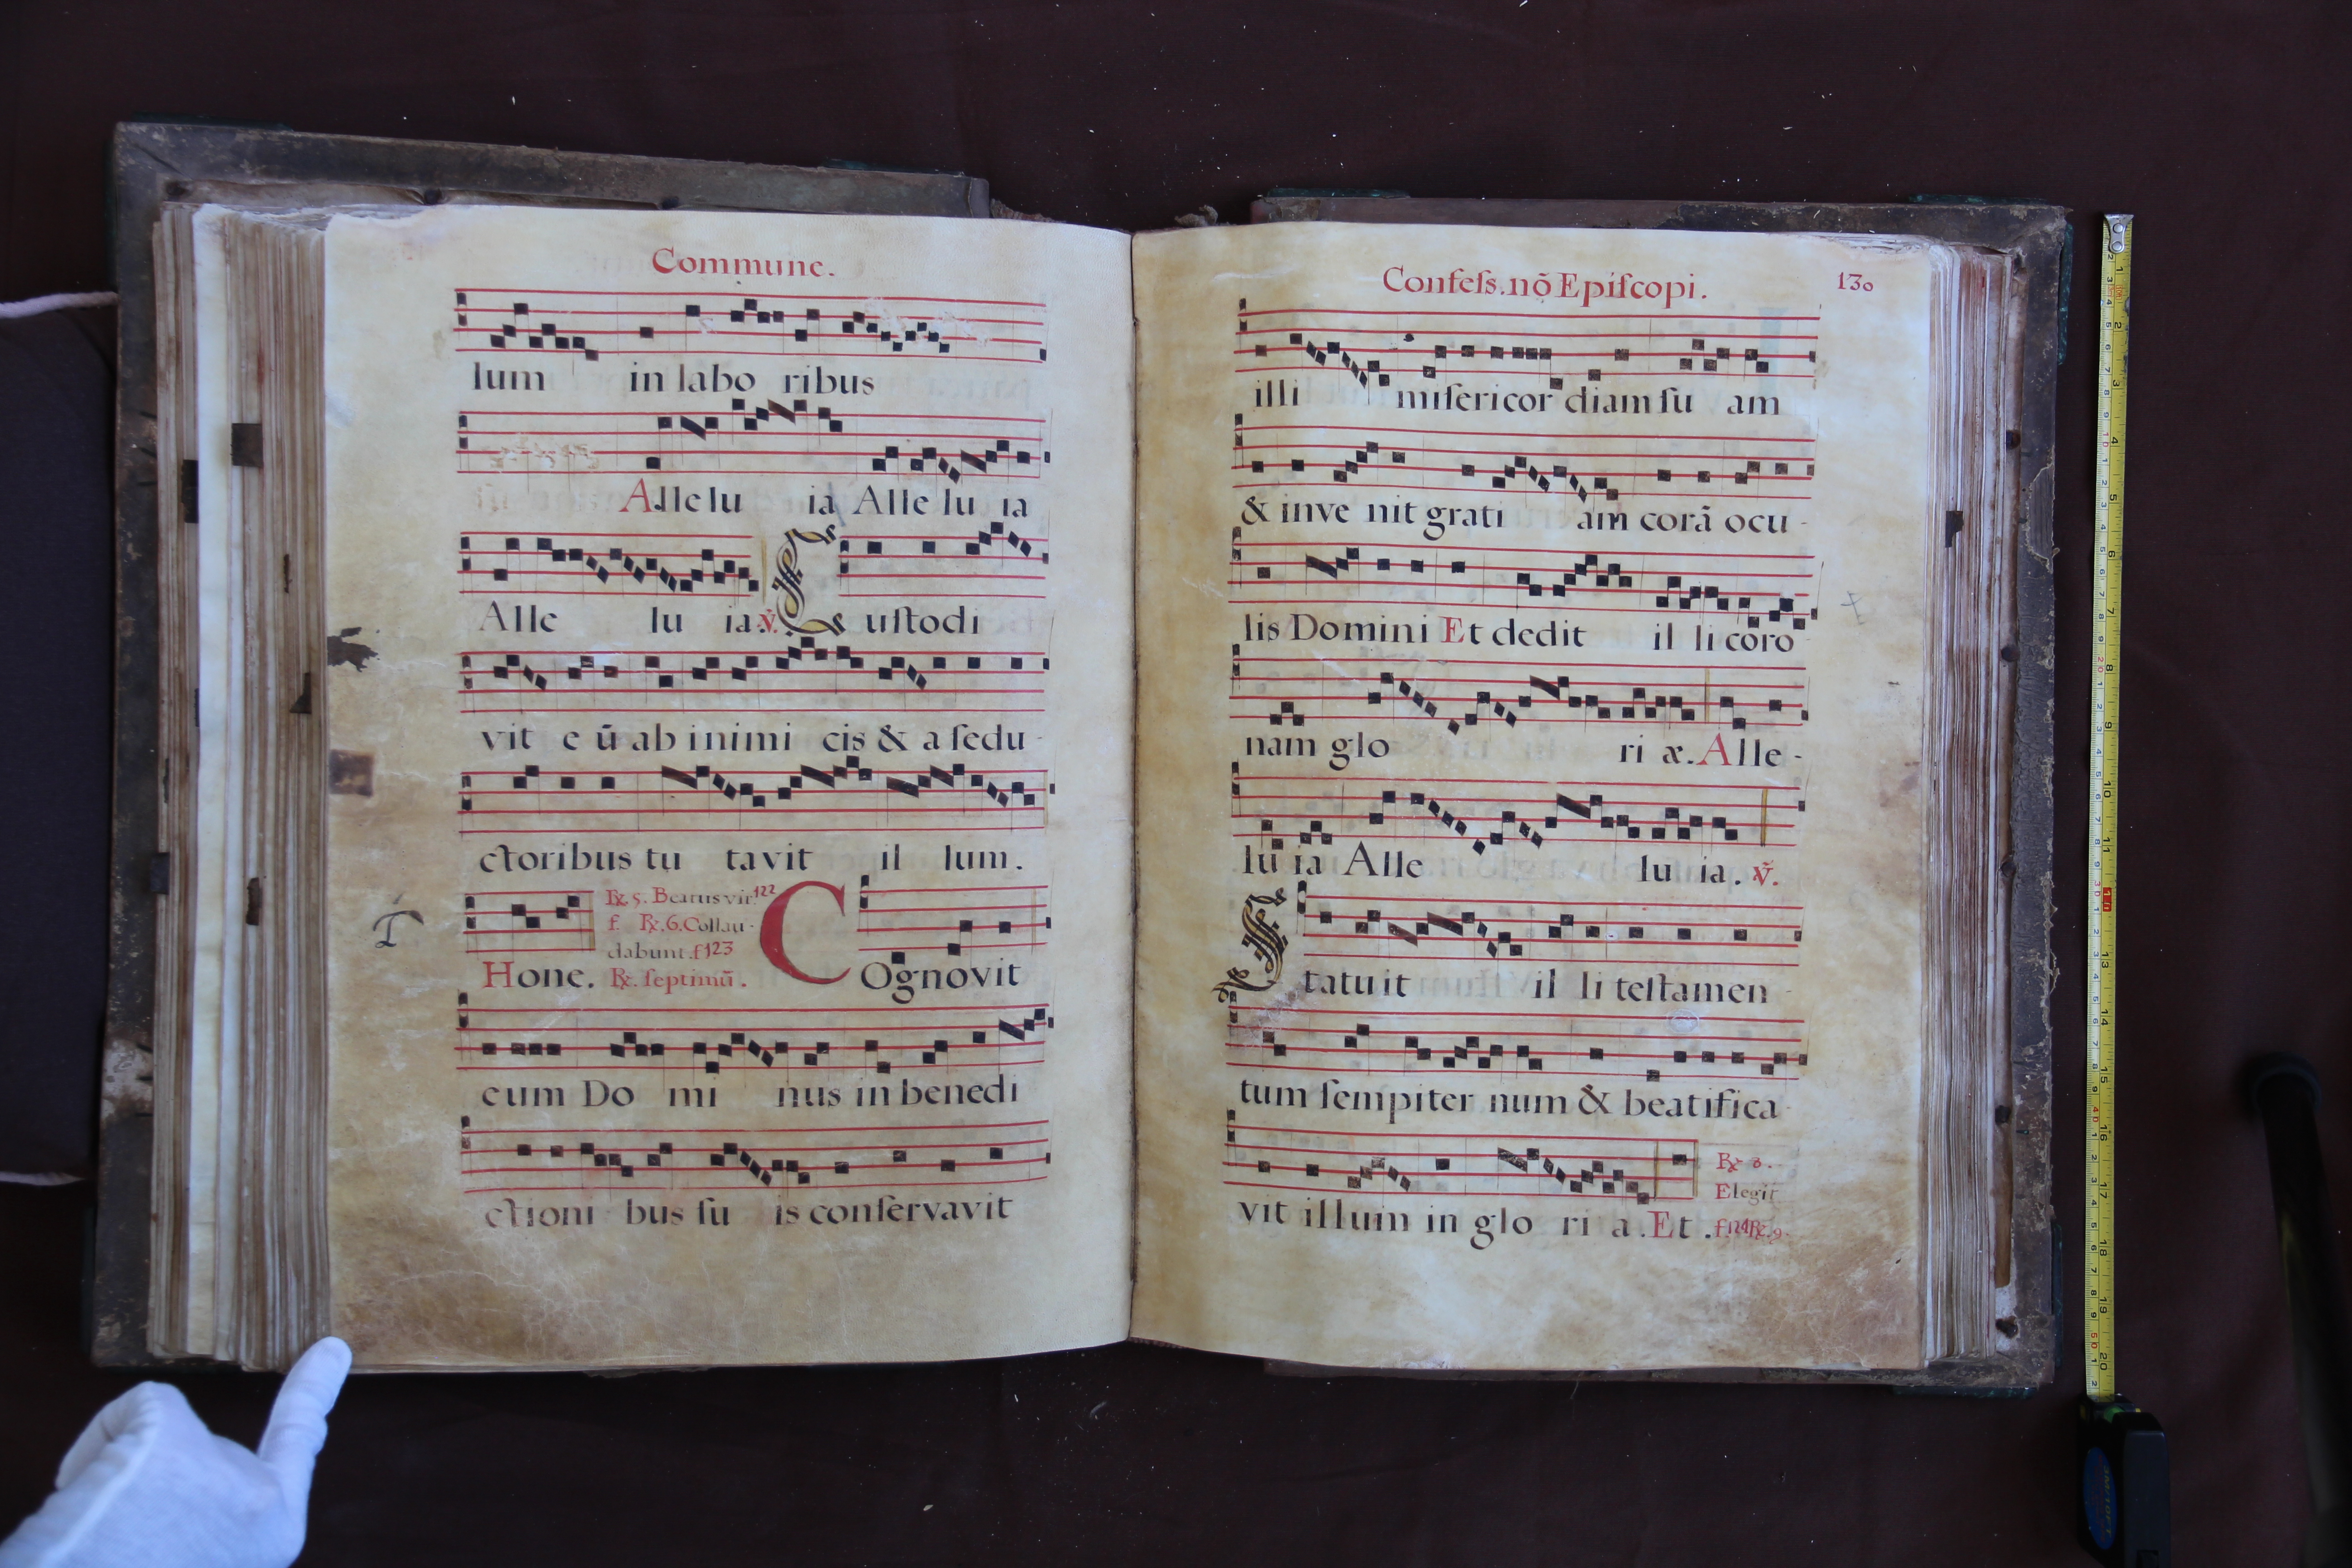 Commune.
lum in labo ribus
Alle lu ia Alle lu ia
Alle lu ia. ℣. C uſtodi
vit e ū ab inimi cis & a ſedu -
ctoribus tu tavit il lum.
℞. 5. Beatus vir. 122
f. ℞. 6. Collau -
dabunt. f123
Hone. ℞. ſeptimū. COgnovit
eum Do mi nus in benedi
ctioni bus ſu is conſervavit
Confeſs. nō Epiſcopi. 130
illi miſericor diam ſu am
& inve nit grati am corā ocu -
lis Domini Et dedit il li coro
nam glo ri æ. Alle -
lu ia Alle lu ia. ℣.
S tatuit il li teſtamen
tum ſempiter num & beatifica
℞ 3.
Elegit
vit illum in glo ri a. Et .